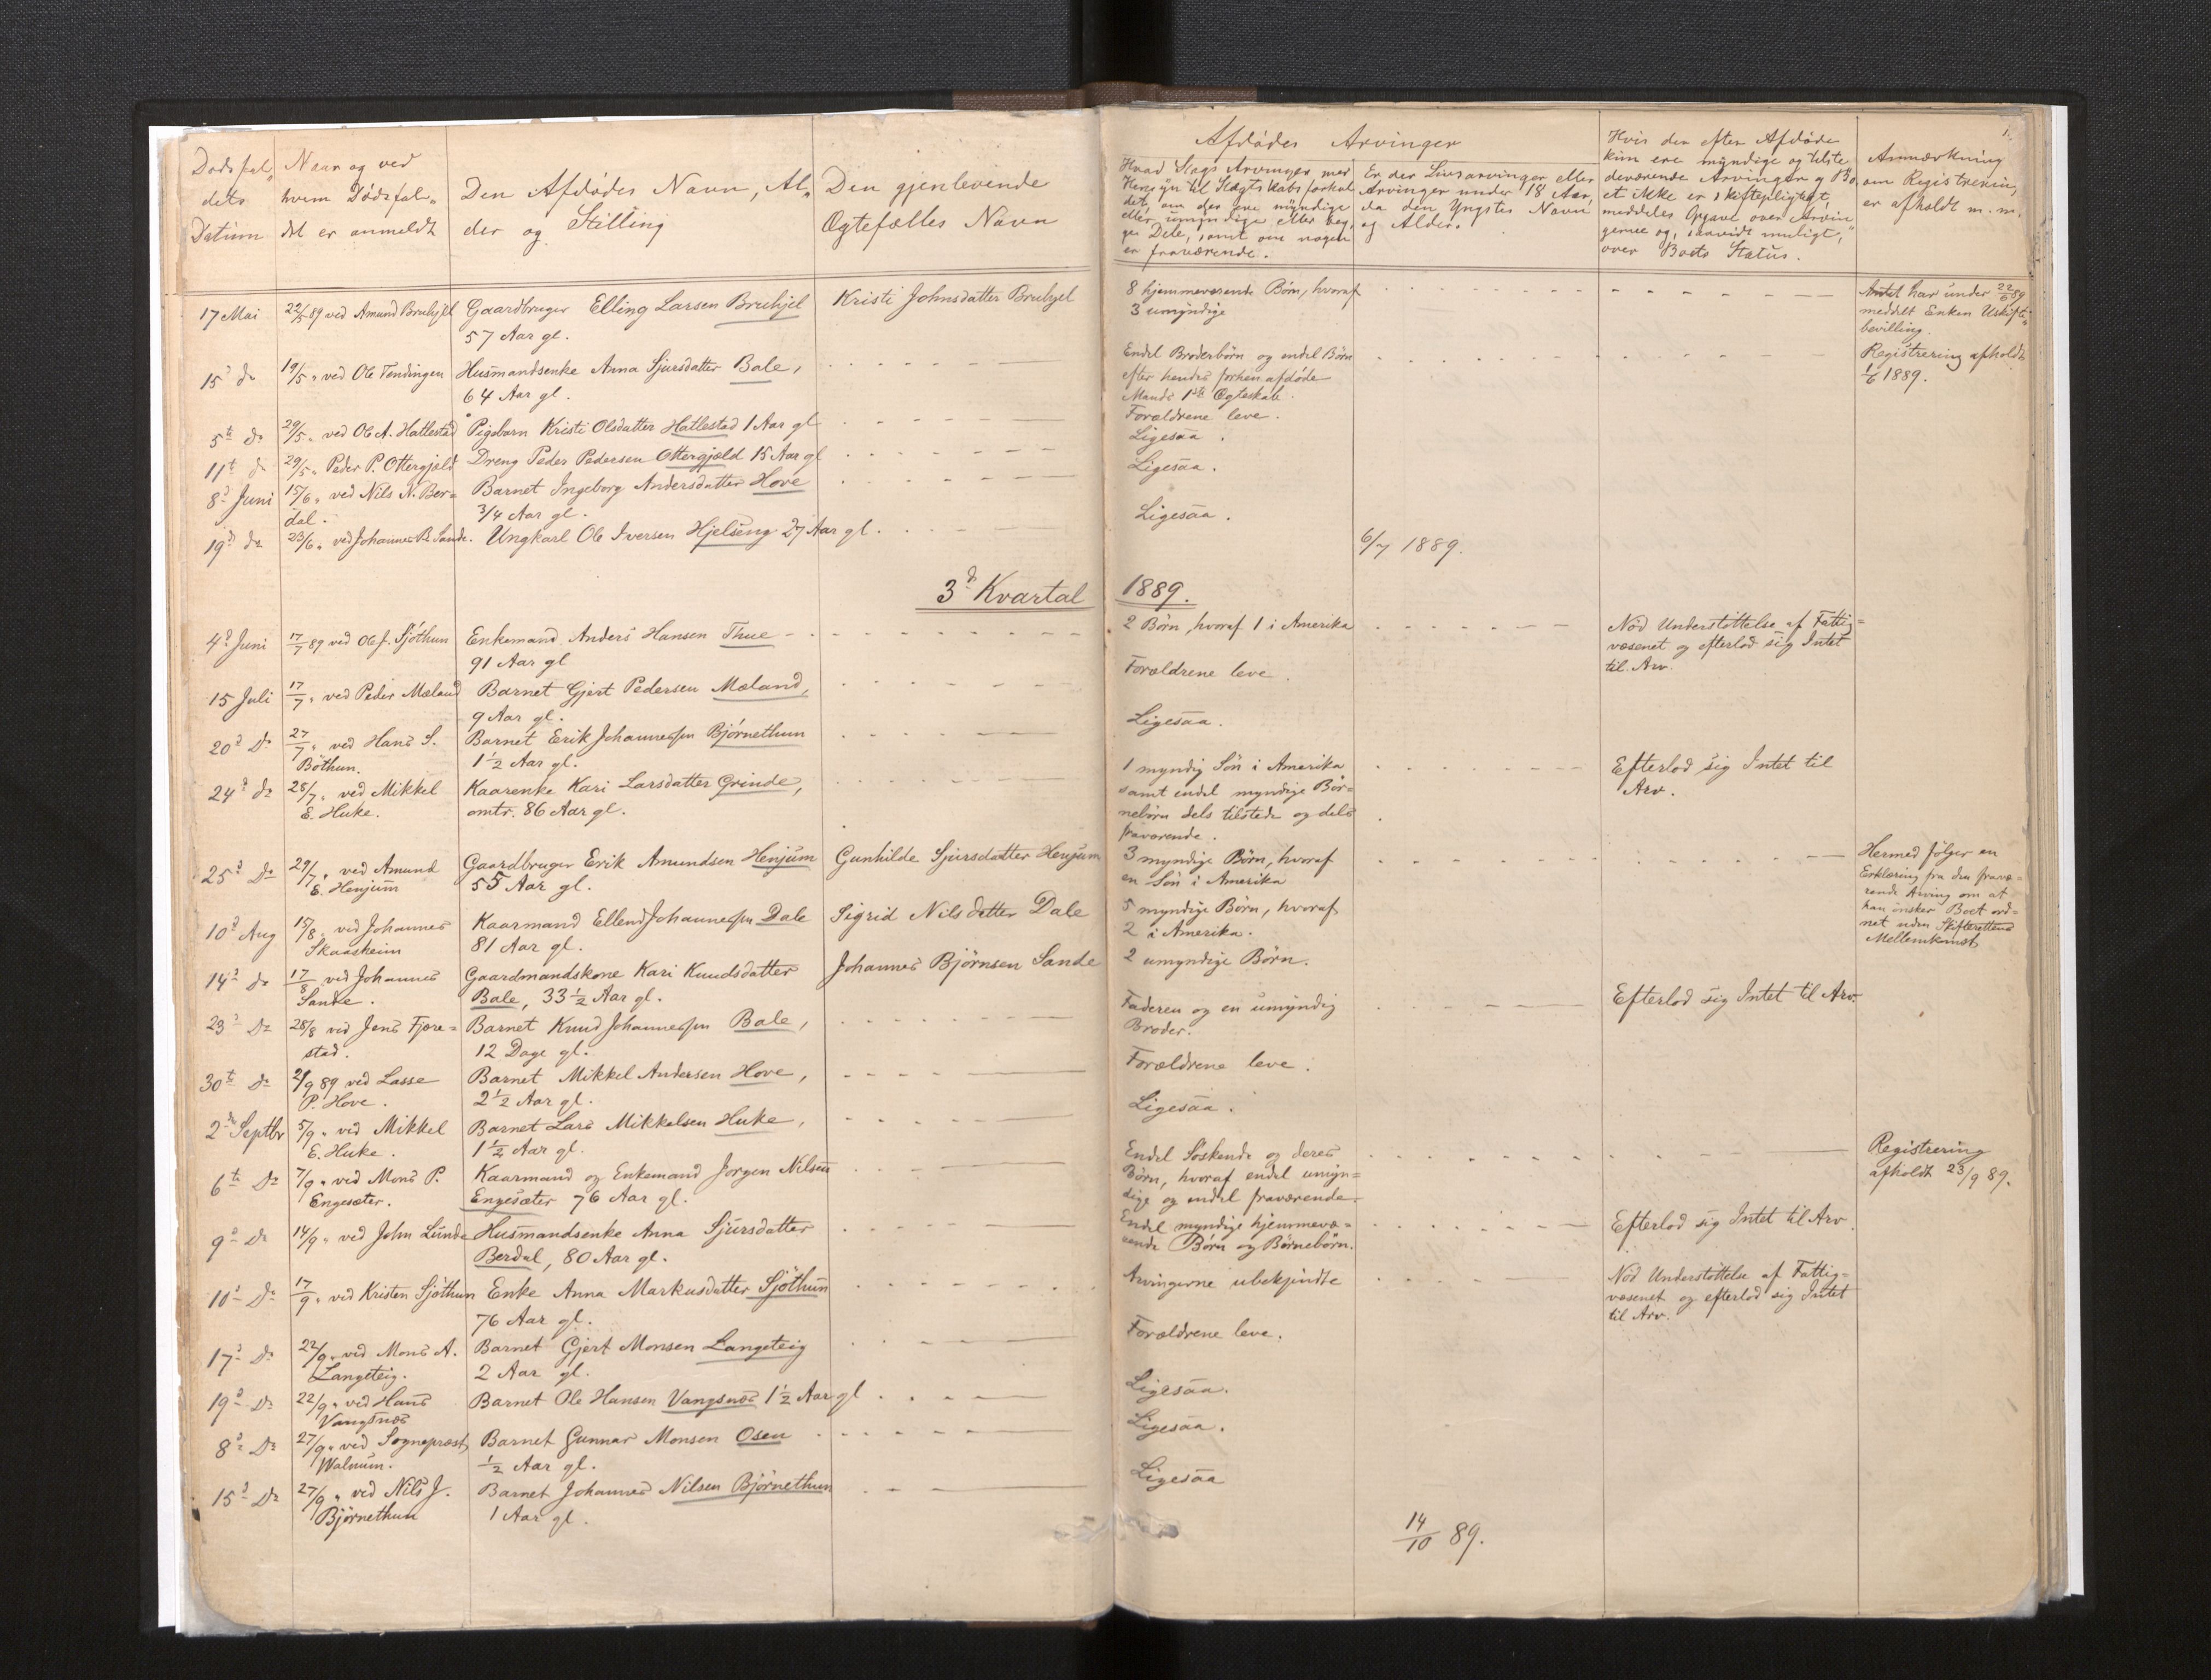 Dødsfal„
dets
Datum
Naar og ved
hvem Dødsfal„
det er anmeldt
Den Afdødes Navn, Al„
der og Stilling
Den gjenlevende
Ægtefælles Navn
Afdødes Arvinger
Hvad Slags Arvinger med
Hensyn til Slægtskabsforhol
det, om der ere myndige
eller umyndige eller beg„
ge Dele, samt om nogen
er fraværende.
Er der Livsarvinger eller
Arvinger under 18 Aar,
da den Yngstes Navn
og Alder.
Hvis den eften Afdøde
kun ere myndige og tilste
deværende Arvinger og Bo„
et ikke er skiftepligtigt,
meddeles Opgave over Arvin„
gerne og, saavidt muligt,
over Boets Status.
Anmærkning
om Registrering
er afholdt m. m.
1.
17 Mai
22/5 89 ved Amund Bruhjel
Gaardbruger Elling Larsen Bruhjel
57 Aar gl.
Kristi Johnsdatter Bruhjel
8 hjemmeværende Børn, hvoraf
3 umyndige
Amtet har under 22/6 89
meddelt Enken Uskifte„
bevilling.
15d do
19/5 „ ved Ole Tendingen
Husmandsenke Anna Sjursdatter Bale,
64 Aar gl.
Endel Broderbørn og endel Børn
efter hendes forhen afdøde
Mands 1ste Ægteskab.
Registrering afholdt
1/6 1889.
5te do
29/5 „ ved Ole A. Hatlestad
Pigebarn Kristi Olsdatter Hatlestad 1 Aar gl
Forældrene leve.
11te do
29/5 „ Peder P. Ottergjæld
Dreng Peder Pedersen Ottergjæld 15 Aar gl
Ligesaa.
8d Juni
15/6 „ ved Nils N. Ber=
dal.
Barnet Ingeborg Andersdatter Hove
3/4 Aar gl.
Ligesaa.
19de do
23/6 „ ved Johannes B. Sande.
Ungkarl Ole Iversen Hjelseng 27 Aar gl.
Ligesaa.
6/7 1889.
3d Kvartal 1889.
4d Juni
17/7 89 ved Ole J. Sjøthun
Enkemand Anders Hansen Thue
91 Aar gl
2 Børn, hvoraf 1 i Amerika
Nød Understøttelse af Fattig=
væsenet og efterlod sig Intet
til Arv.
15 Juli
17/7 „ ved Peder Mæland
Barnet Gjert Pedersen Mæland,
9 Aar gl.
Forældrene leve.
20d Do
27/7 „ ved Hans S.
Bøthun.
Barnet Erik Johannessen Bjørnethun
1 1/2 Aar gl.
Ligesaa.
24d do
28/7 „ ved Mikkel
E. Huke.
Kaarenke Kari Larsdatter Grinde,
omtr. 86 Aar gl.
1 myndig Søn i Amerika
samt endel myndige Bør=
nebørn dels tilstede og dels
fraværende.
Efterlod sig Intet til
Arv.
25d Do
29/7 „ ved Amund
E. Henjum
Gaardbruger Erik Amundsen Henjum
55 Aar gl.
Gunhilde Sjursdatter Henjum
3 myndige Børn, hvoraf
en Søn i Amerika
Hermed følger en
Erklæring fra den fravæ=
rende Arving om at
han ønsker Boet ord=
net uden Skifterettens
Mellemkomst
10d Aug
15/8 „ ved Johannes
Skaasheim
Kaarmand Ellend Johannessen Dale
81 Aar gl.
Sigrid Nilsdatter Dale
5 myndige Børn, hvoraf
2 i Amerika.
14d do
17/8 ved Johannes
Sande.
Gaardmandskone Kari Knudsdatter
Bale, 33 1/2 Aar gl.
Johannes Bjørnsen Sande
2 umyndige Børn.
23d Do
28/8 ved Jens Fjære=
stad.
Barnet Knud Johannessen Bale,
12 Dage gl.
Faderen og en umyndig
Broder.
Efterlod sig Intet til Arv.
30te Do
2/9 89 ved Lasse
P. Hove.
Barnet Mikkel Andersen Hove,
2 1/2 Aar gl.
Forældrene leve.
2de Septbr
5/9 „ ved Mikkel
E. Huke.
Barnet Lars Mikkelsen Huke,
1 1/2 Aar gl.
Ligesaa.
6te Do
7/9 „ ved Mons P.
Engesæter.
Kaarmand og Enkemand Jørgen Nilsen
Engesæter 76 Aar gl.
Endel Søskende og deres
Børn, hvoraf endel umyn=
dige og endel fraværende.
Registrering
afholdt 23/9 89.
9d Do
14/9 „ ved John Lunde
Husmandsenke Anna Sjursdatter
Berdal, 80 Aar gl.
Endel myndige hjemmevæ=
rende Børn og Børnebørn.
Efterlod sig Intet til Arv.
10d Do
17/9 „ ved Kristen Sjøthun
Enke Anna Markusdatter Sjøthun
76 Aar gl.
Arvingerne ubekjendte
Nød Understøttelse af Fattig=
væsenet og efterlod sig Intet
til Arv.
17d Do
22/9 „ ved Mons A.
Langeteig.
Barnet Gjert Monsen Langeteig
2 Aar gl.
Forældrene leve.
19d Do
22/9 „ ved Hans
Vangsnæs
Barnet Ole Hansen Vangsnæs 1 1/2 Aar gl
Ligesaa.
8d Do
27/9 „ ved Sognepræst
Walnum.
Barnet Gunnar Monsen Osen
1/2 Aar gl.
Ligesaa.
15d Do
27/9 „ ved Nils J.
Bjørnethun
Barnet Johannes Nilsen Bjørnethun
1 Aar gl.
Ligesaa
14/10 89.